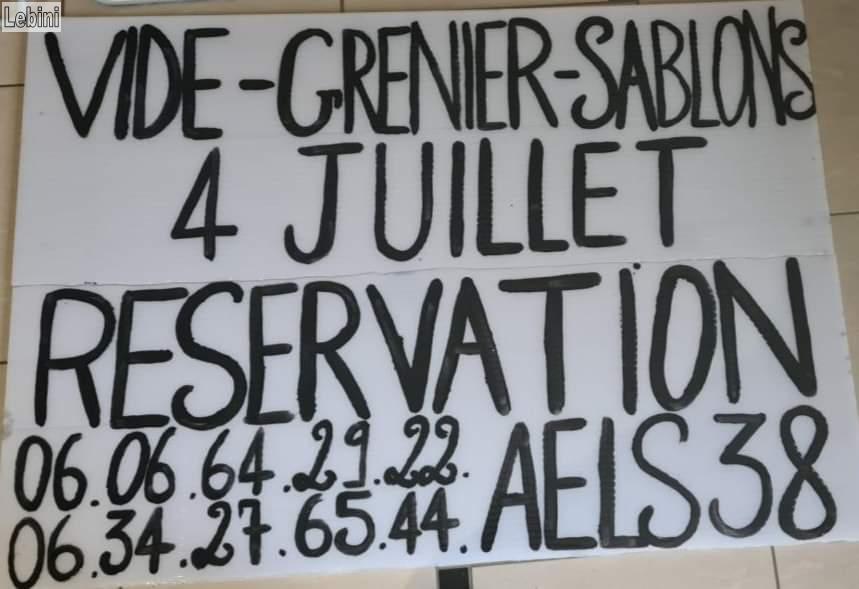 Lebini
VIDE-GRENIER-SABLONS
4 JUILLET
RESERVATiON
06.06.64.29.22.
06.34.27.65.44. AELS38